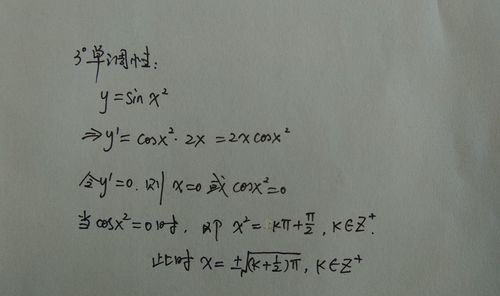 3°单调性:
y=sin x²
⇒y'=cosx²·2x=2xcosx²
令y'=0.则 x=0 或 cosx²=0
当cosx²=0时, 即 x²=kπ+π/2, k∈Z⁺.
此时 x=±√(k+1/2)π, k∈Z⁺